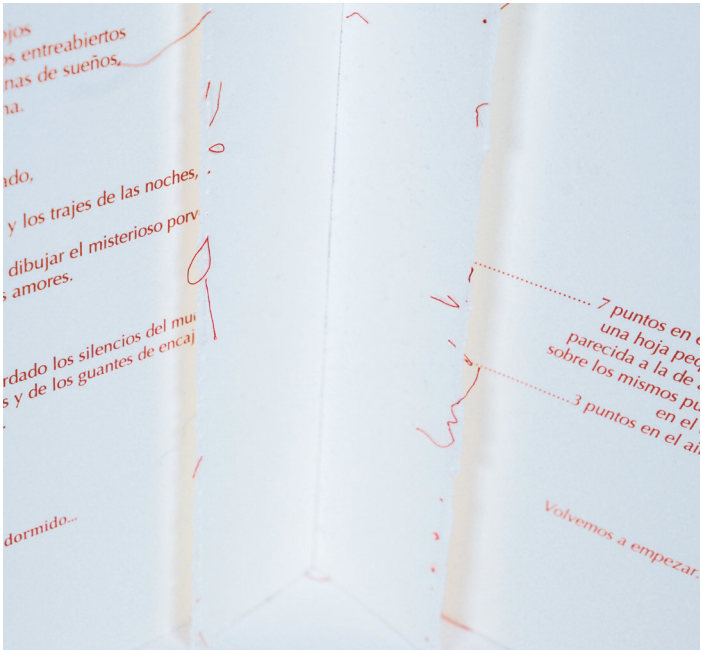 os entreabiertos
nas de sueños,
y los trajes de las noches,
dibujar el misterioso
amores.
los silencios del
y de los guantes de
dormido...
7 puntos en
una hoja
parecida a la de
sobre los mismos
3 puntos en el
en el
Volvemos a empezar.